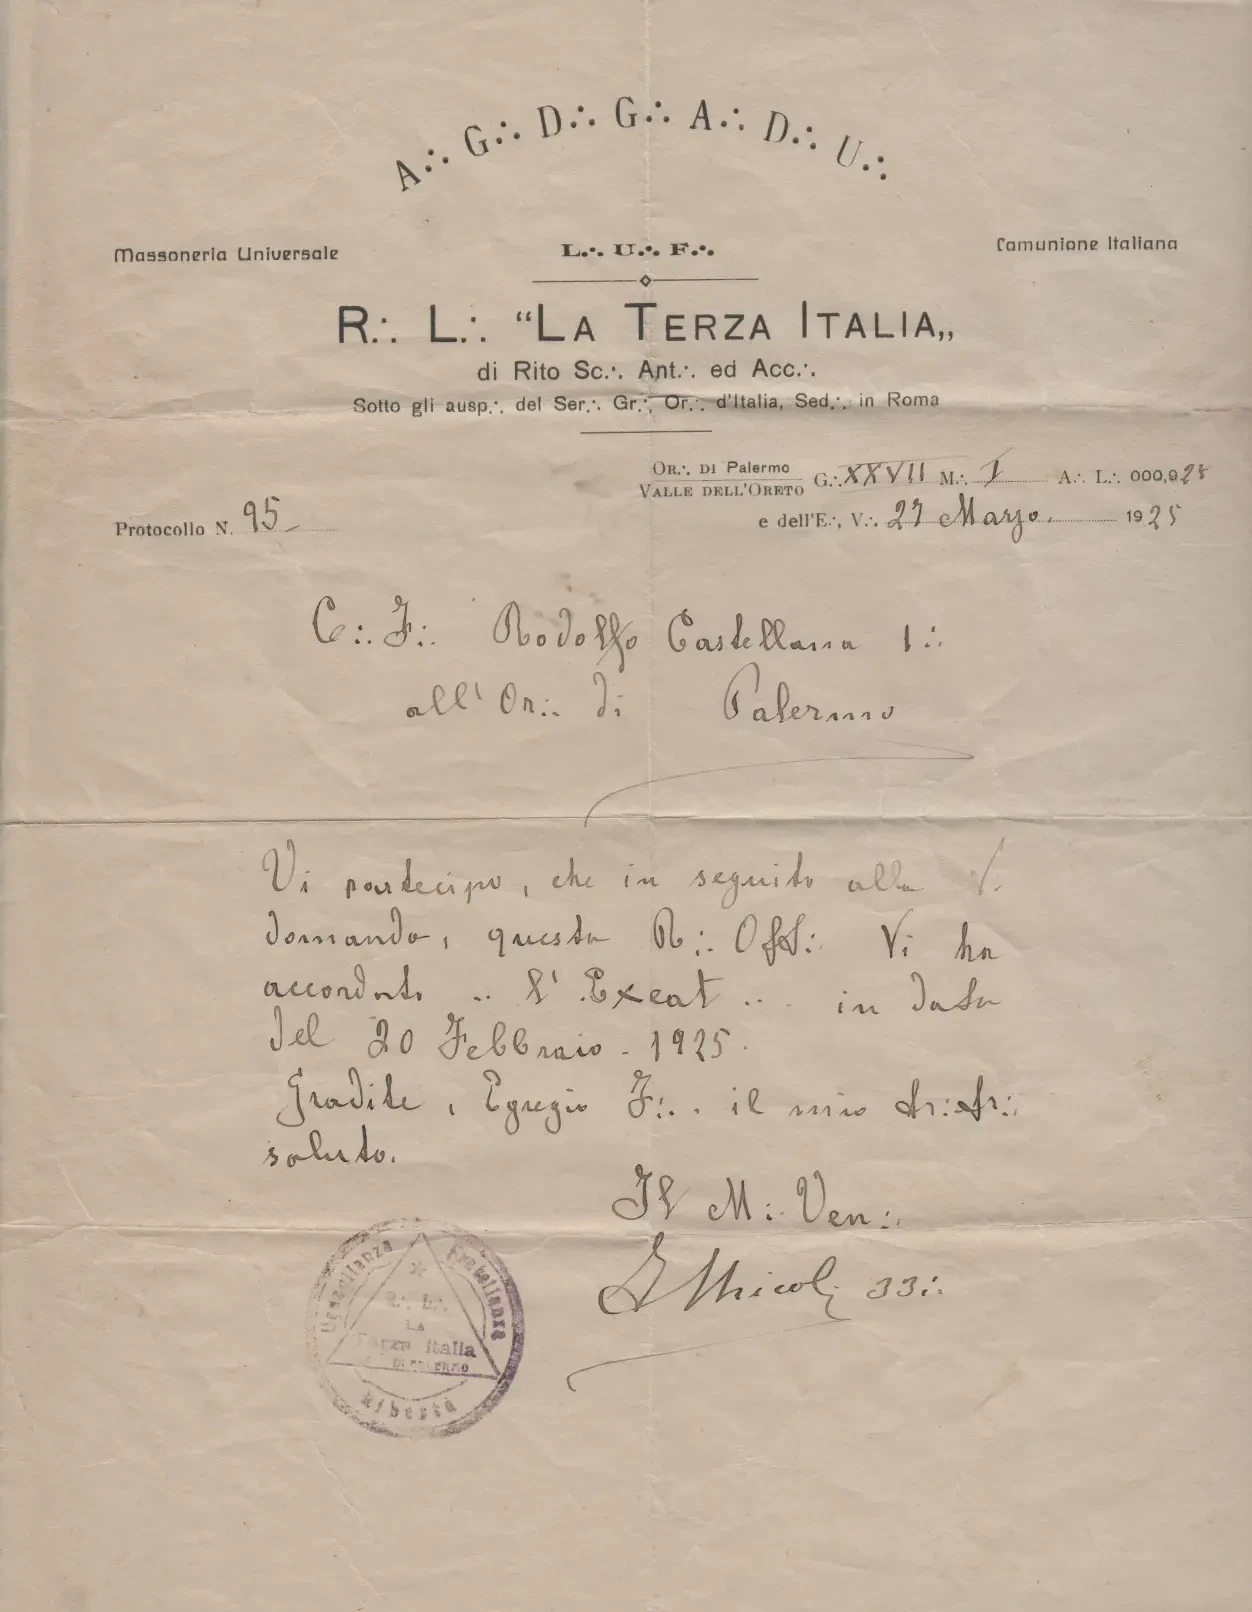 A∴ G∴ D∴ G∴ A∴ D∴ U∴
Massoneria Universale
L∴ U∴ F∴
Comunione Italiana
R∴ L∴ “La Terza Italia„
di Rito Sc∴ Ant∴ ed Acc∴
Sotto gli ausp∴ del Ser∴ Gr∴ Or∴ d'Italia, Sed∴ in Roma
Or∴ di Palermo
Valle dell'Oreto
G∴ XXVII M∴ I A∴ L∴ 000,925
e dell'E∴ V∴ 27 Marzo. 1925
Protocollo N. 95
C∴ F∴ Rodolfo Castellana 1∴
all' Or∴ di Palermo
Vi partecipo, che in seguito alla V.
domanda, questa R∴ Off∴ Vi ha
accordato .. l' Exeat .. in data
del 20 Febbraio - 1925.
Gradite, Egregio F∴ il mio tr∴ fr∴
saluto.
Il M∴ Ven∴
33∴
Uguaglianza
Fratellanza
Libertà
R∴ L∴
LA
Terza Italia
DI PALERMO